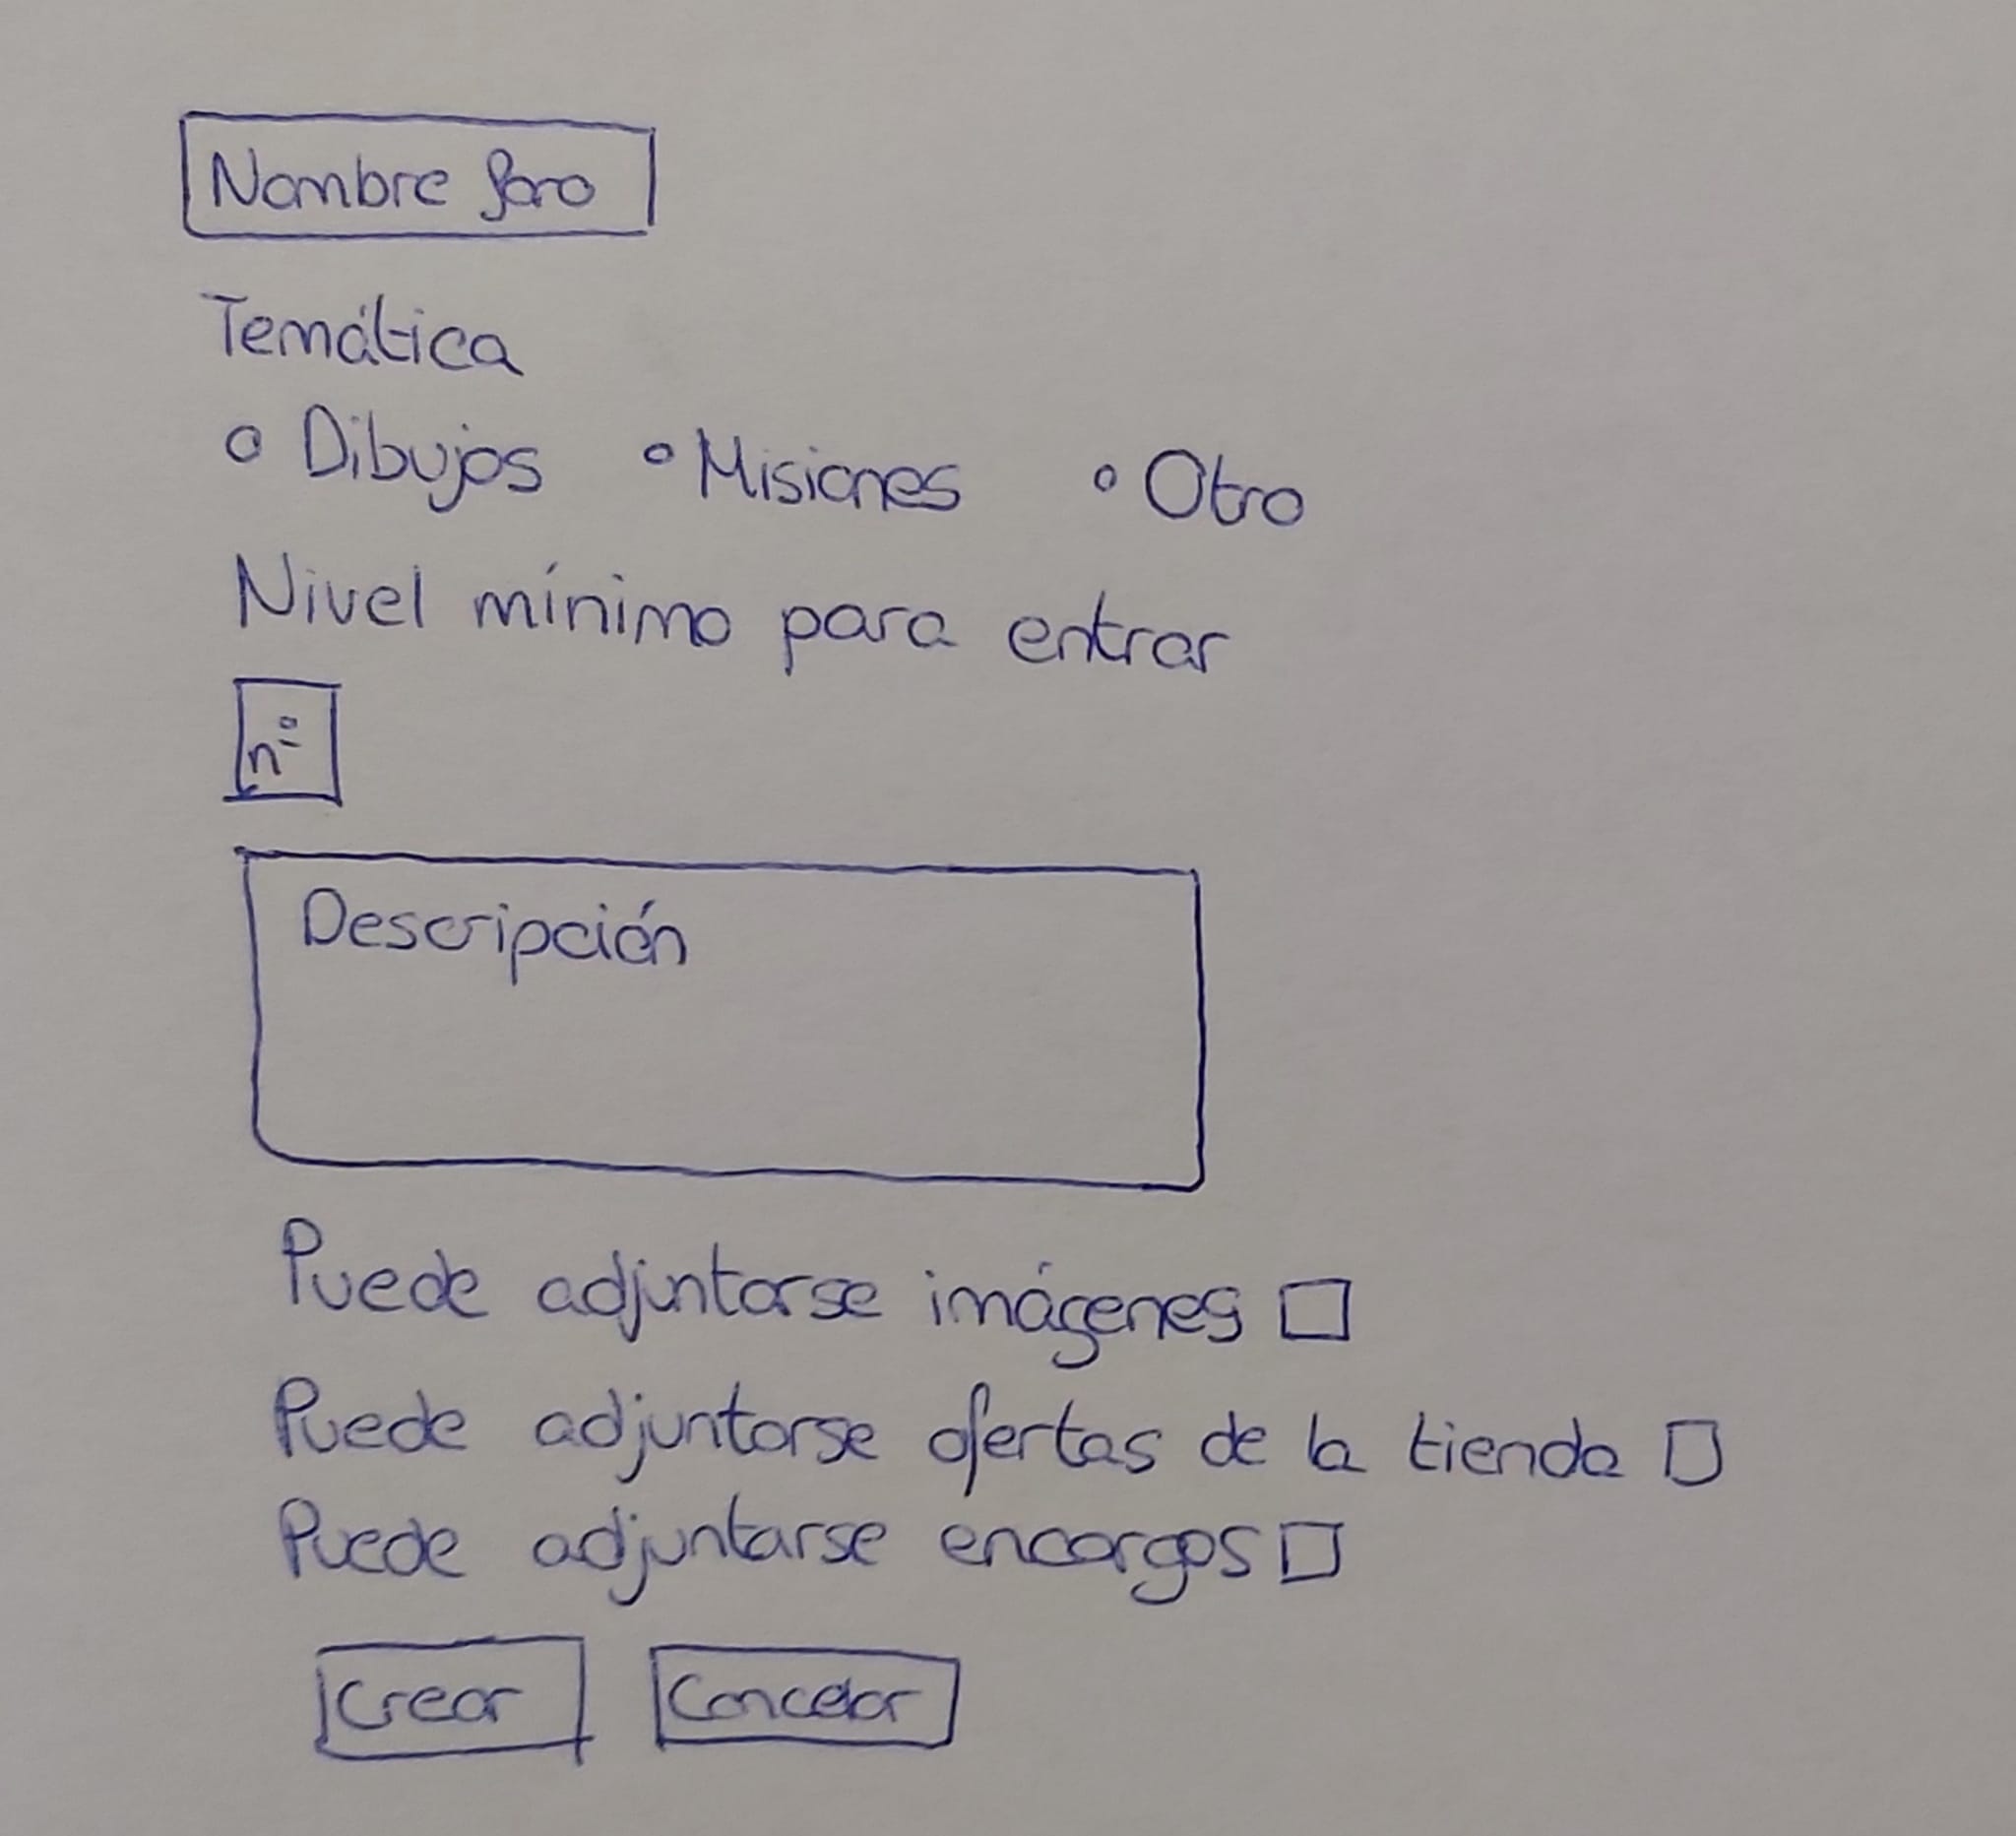 Nombre foro
Temática
Dibujos Misiones Otro
Nivel mínimo para entrar
nº
Descripción
Puede adjuntarse imágenes
Puede adjuntarse ofertas de la tienda
Puede adjuntarse encargos
Crear Cancelar